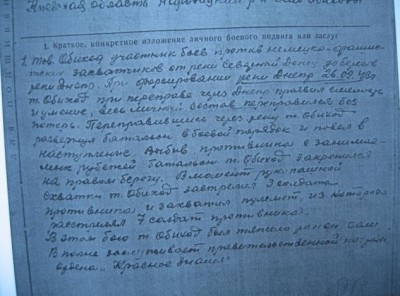 область
I. Краткое, конкретное изложение личного боевого подвига или заслуг
Тов. Обиход участник боев против немецко-фашист-
ских захватчиков от реки Северный Донец до
реки Днепр. При форсировании реки Днепр 26.09.43г
т. Обиход при переправе через Днепр проявил
и умение, весь личный состав переправился без
потерь. Переправившись через реку т. Обиход
развернул батальон в боевой порядок и повел в
наступление. Выбив противника с занима-
емых рубежей батальон т. Обиход закрепился
на правом берегу. В момент рукопашной
схватки т. Обиход застрелил 3 солдата
противника и захватил пулемет, из которого
расстрелял 7 солдат противника.
В этом бою т. Обиход был тяжело ранен. Сам
Вполне заслуживает правительственной
ордена "Красное знамя"